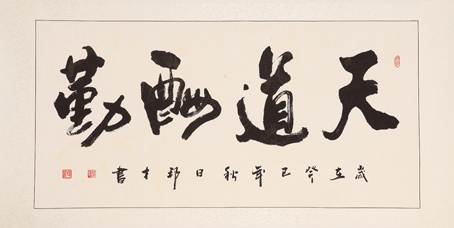 天道酬勤
岁在癸巳年秋日郅才書